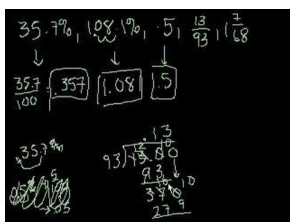 35.7%, 108.1%, .5, 13/93, 1 7/68
35.7/100 = .357 1.081 .5
35.7%
.13
93)13.00
93
370
279